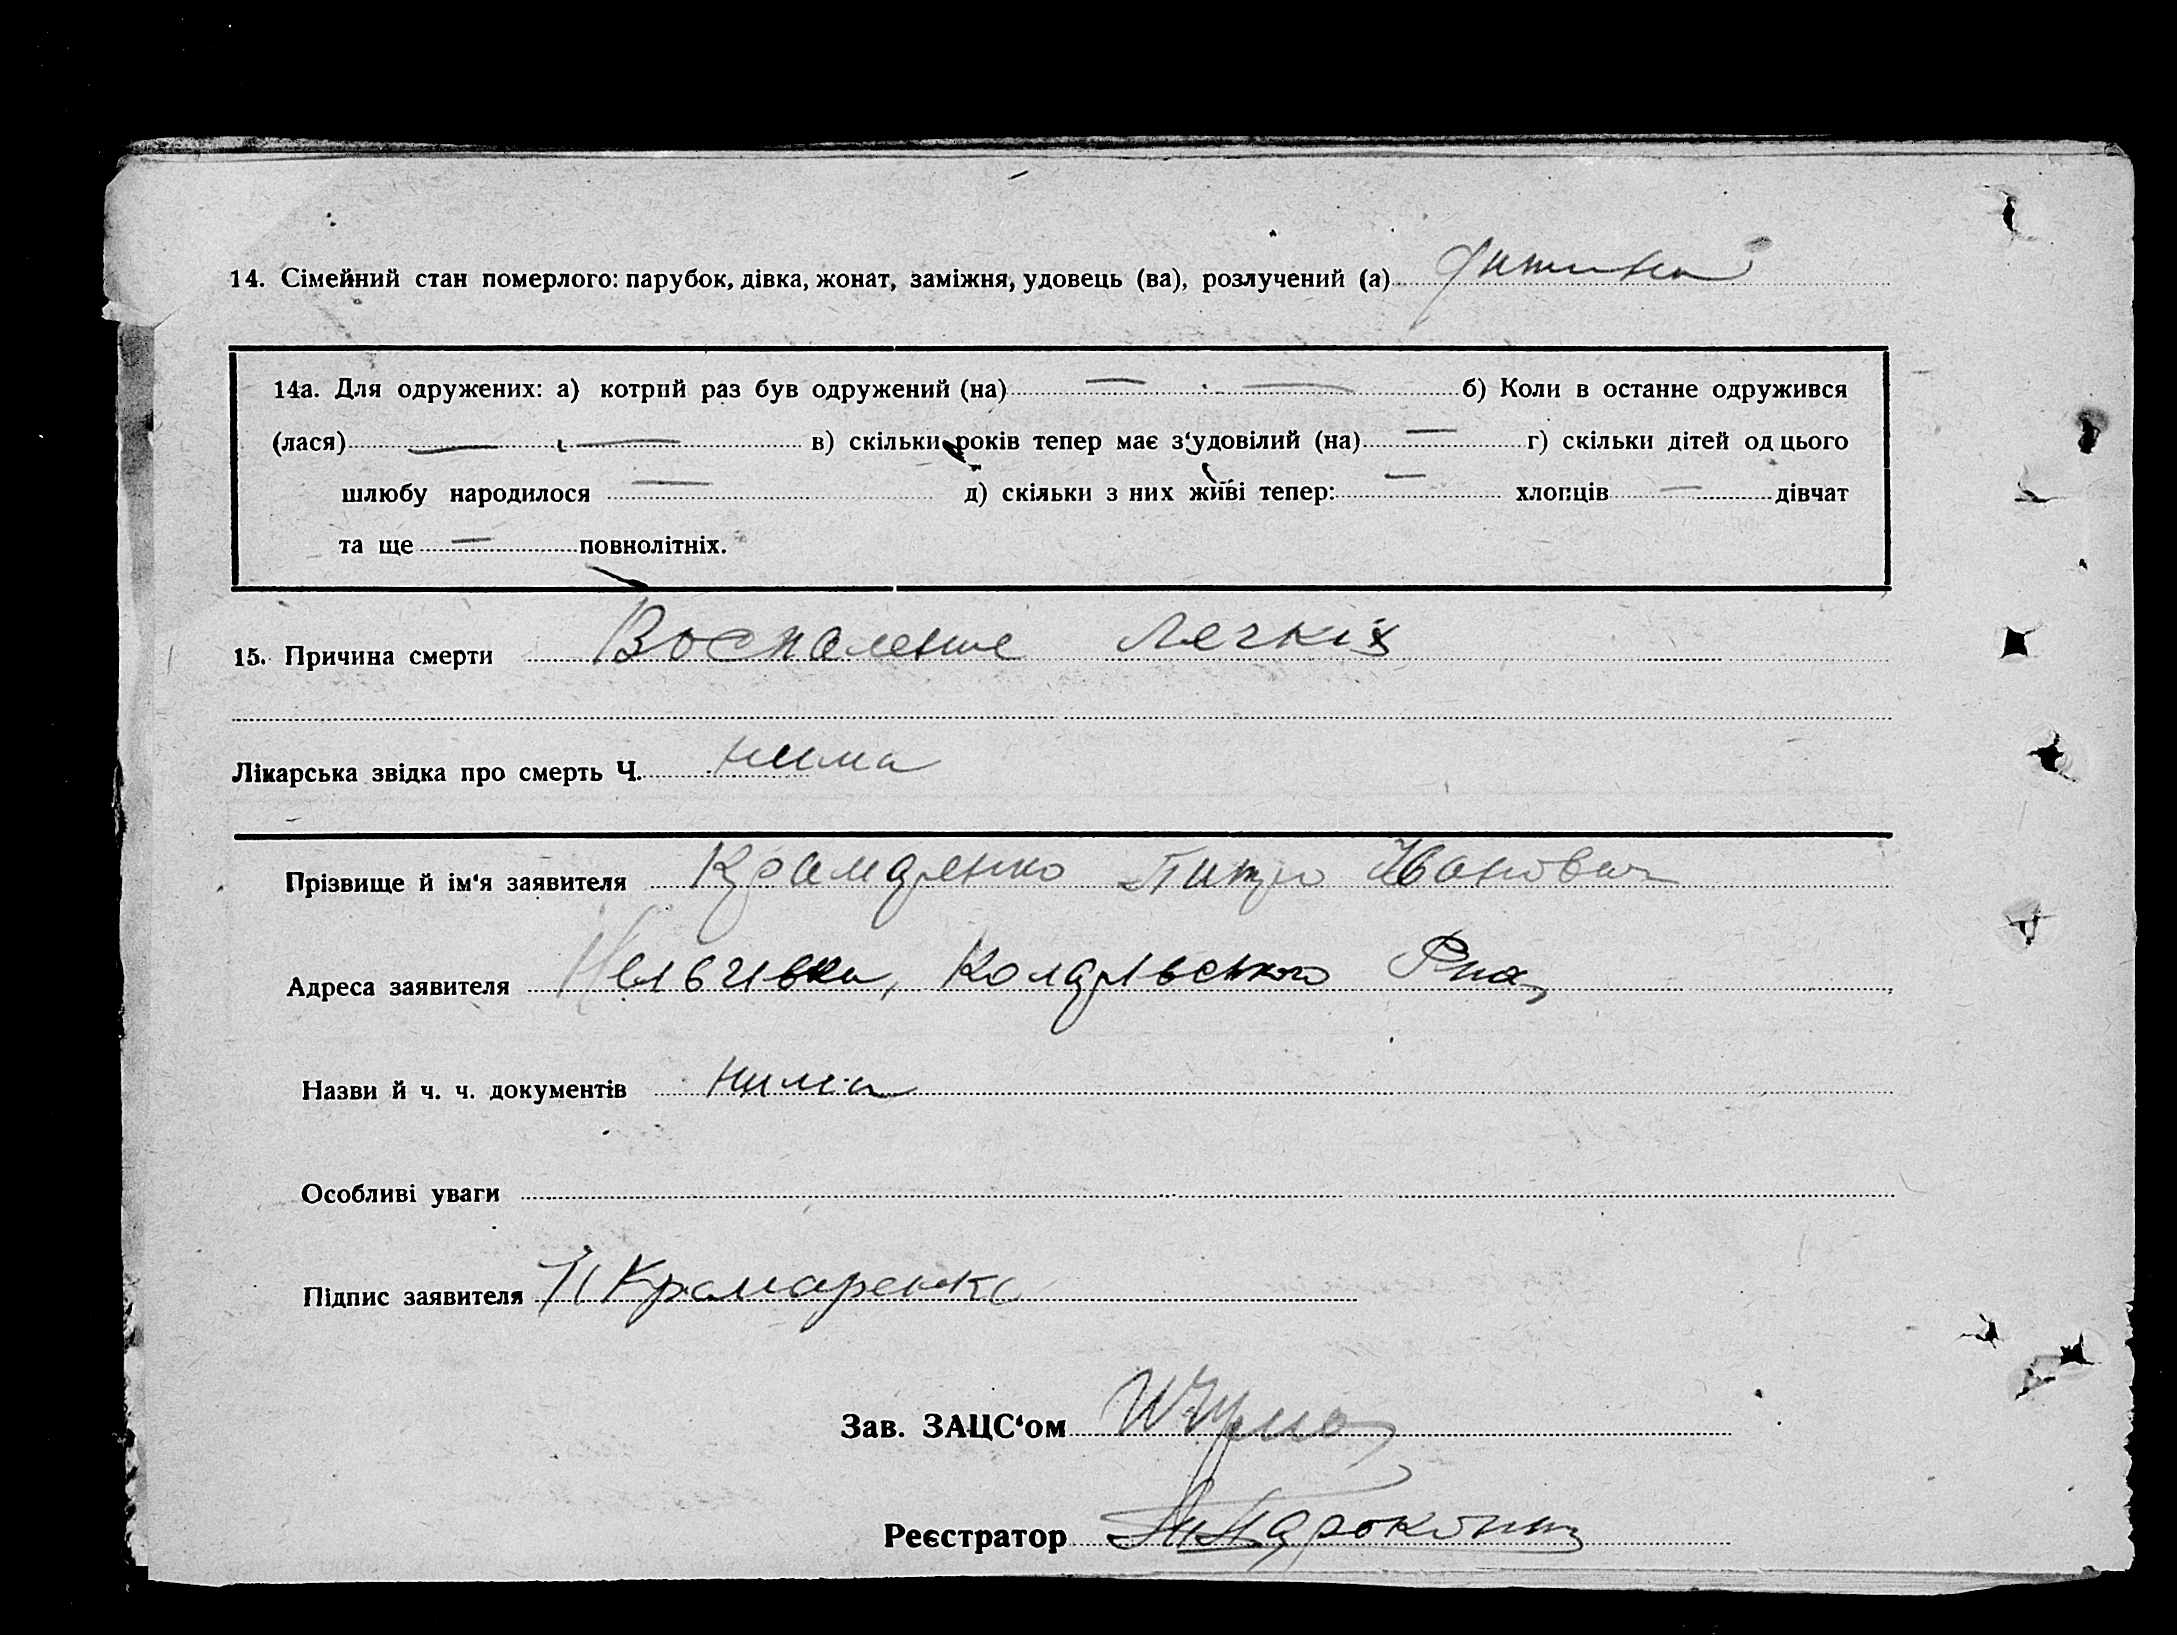 14. Сімейний стан померлого: парубок, дівка, жонат, заміжня, удовець (ва), розлучений (а) дитина
14а. Для одружених: а) котрий раз був одружений (на) — — б) Коли в останне одружився
(лася) — — в) скільки років тепер має з‘удовілий (на) — г) скільки дітей од цього
шлюбу народилося — д) скільки з них живі тепер: — хлопців — дівчат
та ще — повнолітніх.
15. Причина смерти Воспаление легкіх
Лікарська звідка про смерть Ч. нима
Прізвище й ім‘я заявителя Крамаренко Питро Иванович
Адреса заявителя Нельгивка, Коларівського Рна,
Назви й ч. ч. документів нима
Особливі уваги
Підпис заявителя П Крамаренко
Зав. ЗАЦС‘ом
Реєстратор